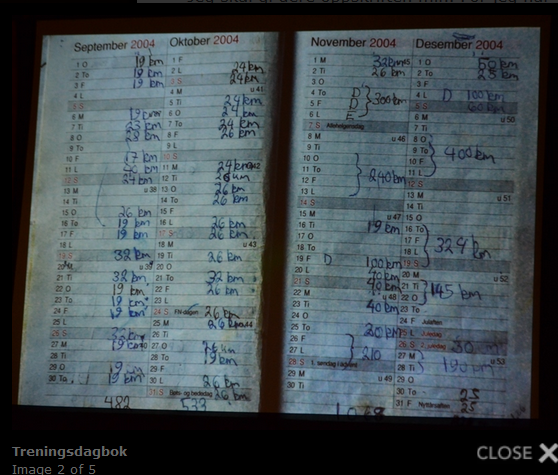 September 2004
1 O 19 km
2 To 18 km
3 F 19 km
4 L
5 S
6 M 19 km
7 Ti 23 km
8 O 28 km
9 To
10 F 17 km
11 L
12 S 24 km
13 M u 38
14 Ti
15 O 26 km
16 To 19 km
17 F 19 km
18 L
19 S 32 km
20 M u 39
21 Ti 32 km
22 O 19 km
23 To 19 km
24 F 19 km
25 L
26 S
27 M 19 km
28 Ti
29 O 19 km
30 To 19 km
482
Oktober 2004
1 F
2 L 24 km
3 S 24 km
4 M u 41
5 Ti 24 km
6 O 24 km
7 To 24 km
8 F 26 km
9 L
10 S
11 M 24 km
12 Ti 26 km
13 O 26 km
14 To 26 km
15 F
16 L 26 km
17 S 26 km
18 M u 43
19 Ti 26 km
20 O
21 To 32 km
22 F 26 km
23 L
24 S FN-dagen 26 km
25 M 26 km
26 Ti
27 O 26 km
28 To 19 km
29 F
30 L 26 km
31 S Bots- og bededag 26 km
533
November 2004
1 M 32 km
2 Ti 26 km
3 O
4 To D
5 F D 300 km
6 L E
7 S Allehelgensdag
8 M u 46
9 Ti
10 O
11 To
12 F 240 km
13 L
14 S
15 M u 47
16 Ti 19 km
17 O
18 To
19 F D 100 km
20 L 40 km
21 S 40 km
22 M u 48 40 km
23 Ti 40 km
24 O
25 To 20 km
26 F
27 L 210
28 S 1. søndag i advent
29 M u 49
30 Ti
Desember 2004
1 O 60 km
2 To 28 km
3 F
4 L D 100 km
5 S 60 km
6 M u 50
7 Ti
8 O
9 To
10 F 400 km
11 L
12 S
13 M u 51
14 Ti
15 O
16 To
17 F
18 L 324 km
19 S
20 M u 52
21 Ti
22 O 145 km
23 To
24 F Julaften
25 L 1. juledag
26 S 2. juledag 30 km
27 M u 53
28 Ti 190 km
29 O
30 To 25
31 F Nyttårsaften 25
Treningsdagbok
Image 2 of 5
CLOSE X